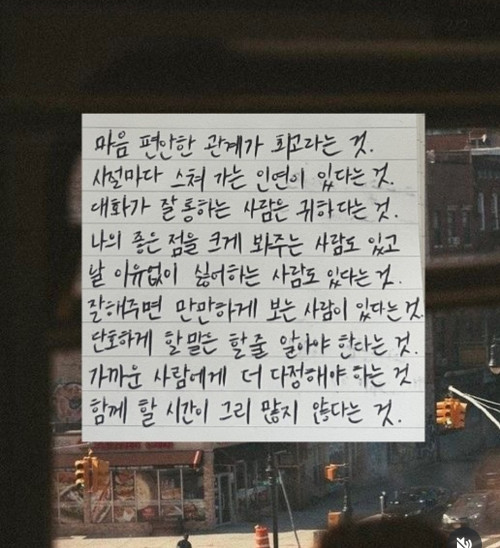 마음 편안한 관계가 최고라는 것.
시절마다 스쳐 가는 인연이 있다는 것.
대화가 잘 통하는 사람은 귀하다는 것.
나의 좋은 점을 크게 봐주는 사람도 있고
날 이유없이 싫어하는 사람도 있다는 것.
잘해주면 만만하게 보는 사람이 있다는 것.
단호하게 할말은 할 줄 알아야 한다는 것.
가까운 사람에게 더 다정해야 하는 것
함께 할 시간이 그리 많지 않다는 것.